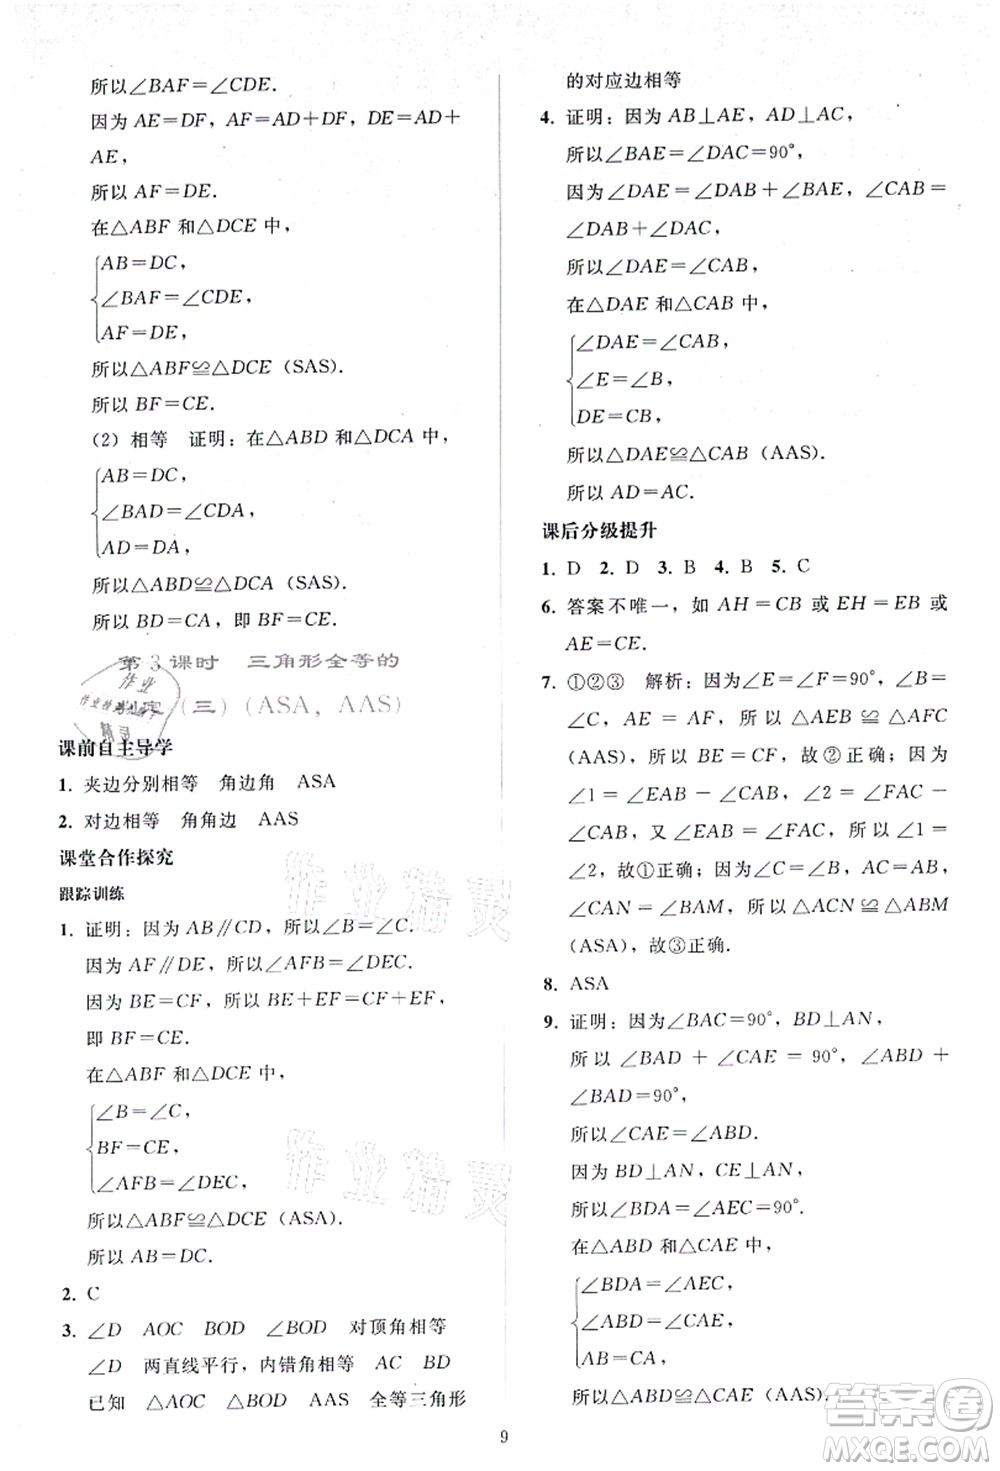 所以∠BAF=∠CDE.
因为 AE=DF，AF=AD+DF，DE=AD+
AE，
所以 AF=DE.
在△ABF 和△DCE 中，
AB=DC，
∠BAF=∠CDE，
AF=DE，
所以△ABF≌△DCE（SAS）.
所以 BF=CE.
（2）相等　证明：在△ABD 和△DCA 中，
AB=DC，
∠BAD=∠CDA，
AD=DA，
所以△ABD≌△DCA（SAS）.
所以 BD=CA，即 BF=CE.
第 3 课时　三角形全等的
（三）（ASA，AAS）
课前自主导学
1. 夹边分别相等　角边角　ASA
2. 对边相等　角角边　AAS
课堂合作探究
跟踪训练
1. 证明：因为 AB∥CD，所以∠B=∠C.
因为 AF∥DE，所以∠AFB=∠DEC.
因为 BE=CF，所以 BE+EF=CF+EF，
即 BF=CE.
在△ABF 和△DCE 中，
∠B=∠C，
BF=CE，
∠AFB=∠DEC，
所以△ABF≌△DCE（ASA）.
所以 AB=DC.
2. C
3. ∠D　AOC　BOD　∠BOD　对顶角相等
∠D　两直线平行，内错角相等　AC　BD
已知　△AOC　△BOD　AAS　全等三角形
的对应边相等
4. 证明：因为 AB⊥AE，AD⊥AC，
所以∠BAE=∠DAC=90°，
因为∠DAE=∠DAB+∠BAE，∠CAB=
∠DAB+∠DAC，
所以∠DAE=∠CAB，
在△DAE 和△CAB 中，
∠DAE=∠CAB，
∠E=∠B，
DE=CB，
所以△DAE≌△CAB（AAS）.
所以 AD=AC.
课后分级提升
1. D　2. D　3. B　4. B　5. C
6. 答案不唯一，如 AH=CB 或 EH=EB 或
AE=CE.
7. ①②③　解析：因为∠E=∠F=90°，∠B=
∠C，AE = AF，所以△AEB ≌ △AFC
（AAS），所以 BE=CF，故②正确；因为
∠1 = ∠EAB − ∠CAB，∠2 = ∠FAC −
∠CAB，又∠EAB = ∠FAC，所以∠1 =
∠2，故①正确；因为∠C=∠B，AC=AB，
∠CAN = ∠BAM，所以△ACN ≌ △ABM
（ASA），故③正确.
8. ASA
9. 证明：因为∠BAC=90°，BD⊥AN，
所以∠BAD + ∠CAE = 90°，∠ABD +
∠BAD=90°，
所以∠CAE=∠ABD.
因为 BD⊥AN，CE⊥AN，
所以∠BDA=∠AEC=90°.
在△ABD 和△CAE 中，
∠BDA=∠AEC，
∠ABD=∠CAE，
AB=CA，
所以△ABD≌△CAE（AAS）.
9
作业精灵
作业精灵
答案卷
MXQE.COM